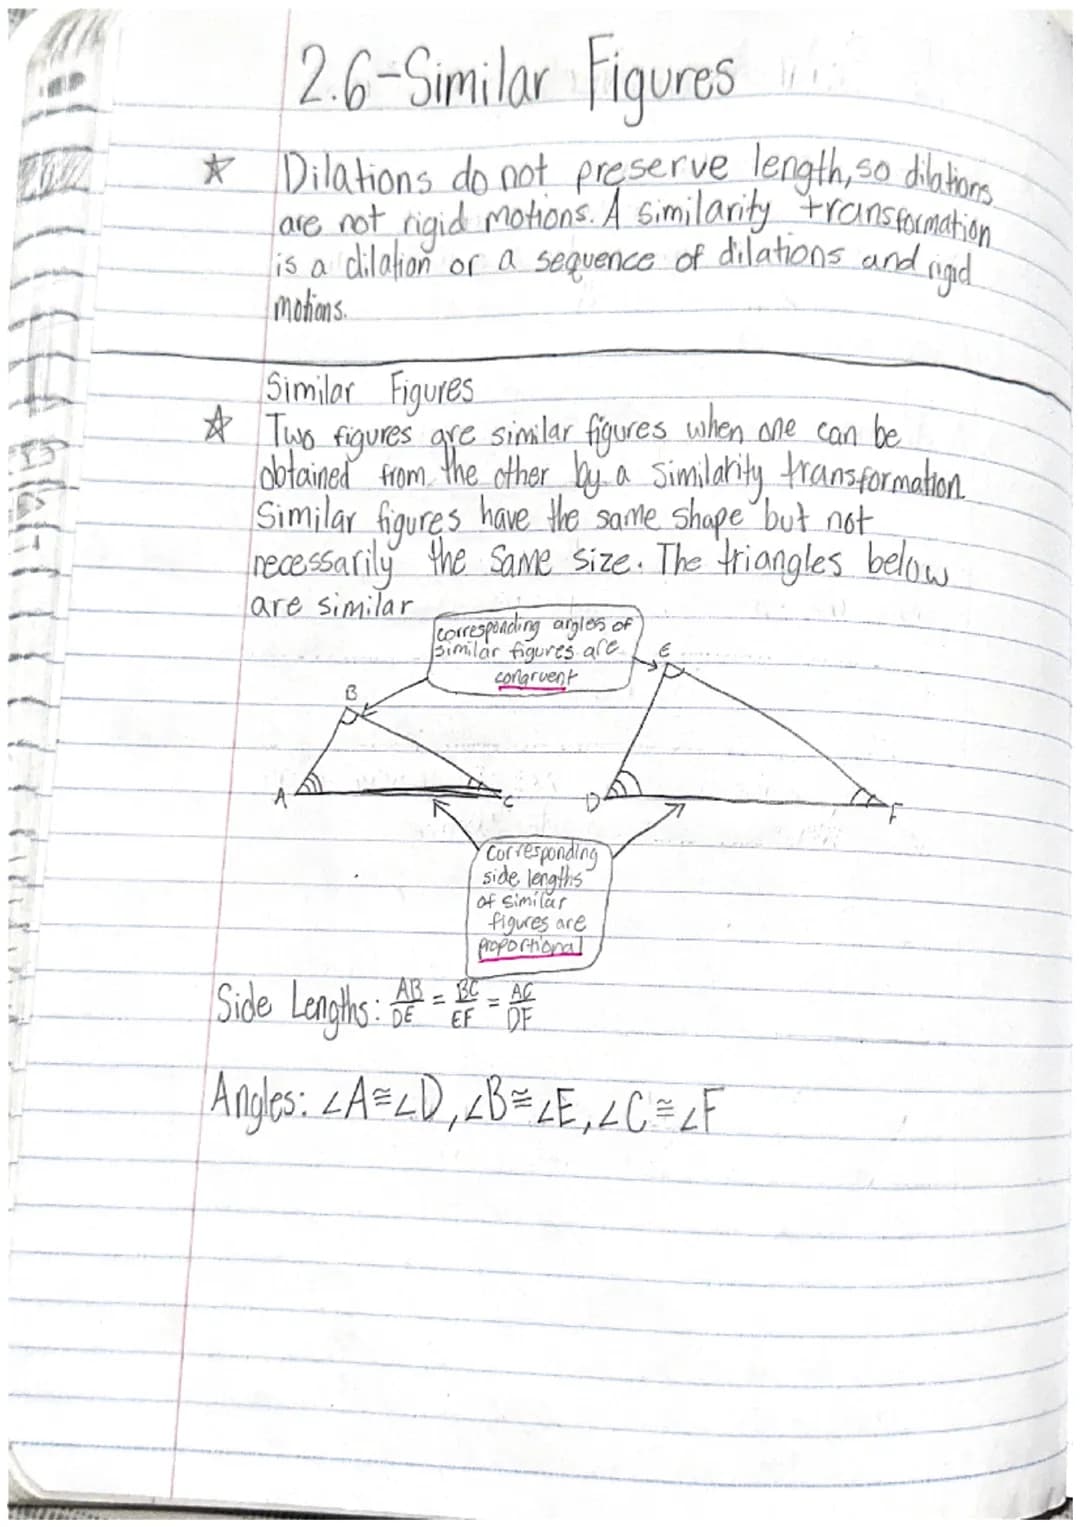 2.6-Similar Figures
Dilations do not preserve length, so dilations
are not rigid motions. A similarity transformation
is a dilation or a sequence of dilations and rigid
motions.
Similar Figures
Two figures are similar figures when one can be
obtained from the other by a similarity transformation
Similar figures have the same shape but not
necessarily the same size. The triangles below
are similar
corresponding angles of
similar figures are
congruent
E
B
A
C
D
F
Corresponding
side lengths
of similar
figures are
proportional
Side Lengths: AB/DE = BC/EF = AC/DF
Angles: ∠A≅∠D, ∠B≅∠E, ∠C≅∠F